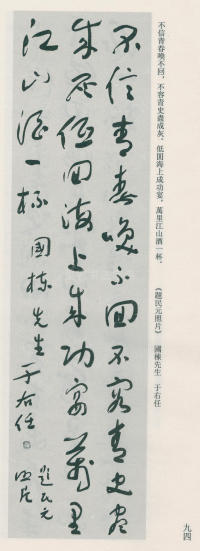 不信青春喚不回，不容青史盡成灰，低徊海上成功宴，萬里江山酒一杯。
《題民元照片》 國棟先生 于右任
不信青春喚不回不容青史盡
成灰低回海上成功宴萬里
江山酒一杯 國棟先生 于右任
題民元
照片
九四